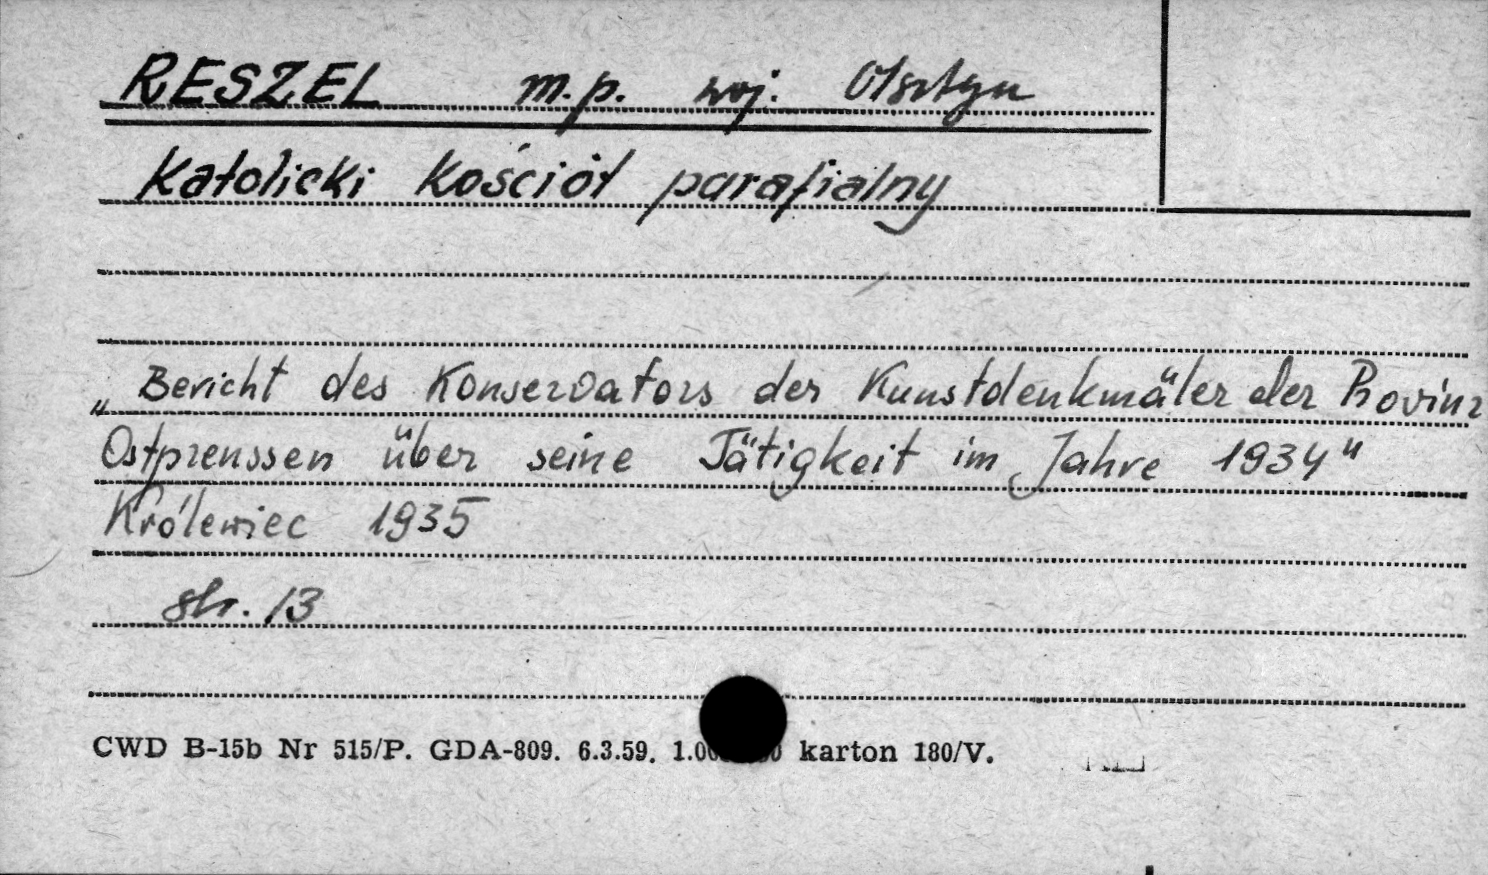 RESZEL m.p. woj. Olsztyn
Katolicki Kościół parafialny
„Bericht des Konservators der Kunstdenkmäler der Provinz
Ostpreussen über seine Tätigkeit im Jahre 1934"
Królewiec 1935
str. 13
CWD B-15b Nr 515/P. GDA-809. 6.3.59. karton 180/V.